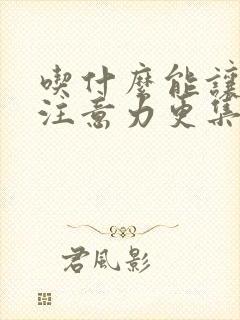 喫什麼能讓
注意力更集
君風影